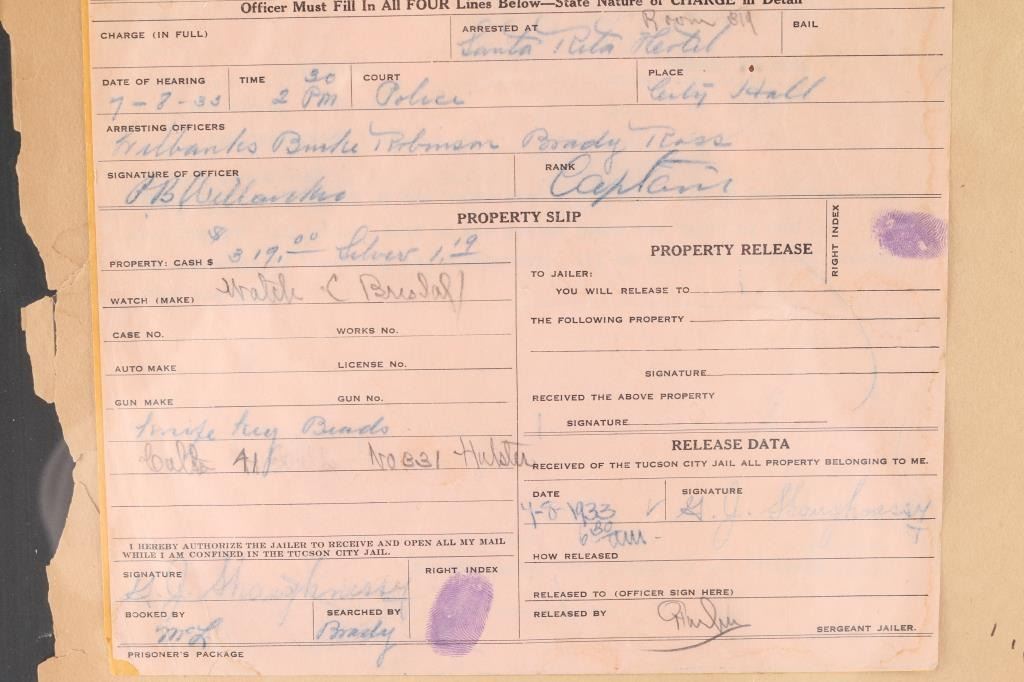 Officer Must Fill In All FOUR Lines Below—State Nature of CHARGE in Detail
CHARGE (IN FULL) ARRESTED AT Santa Rita Hotel Room 319 BAIL
DATE OF HEARING 7-8-33 TIME 2 30 PM COURT Police PLACE City Hall
ARRESTING OFFICERS Wilbanks Burke Robinson Brady Ross
SIGNATURE OF OFFICER RANK Captain
PROPERTY SLIP
PROPERTY: CASH $ $ 319.00 Silver 1.19
WATCH (MAKE) Watch
CASE NO. WORKS NO.
AUTO MAKE LICENSE NO.
GUN MAKE GUN NO.
Knife Key Beads
Colts 41 No 331 Holster
I HEREBY AUTHORIZE THE JAILER TO RECEIVE AND OPEN ALL MY MAIL
WHILE I AM CONFINED IN THE TUCSON CITY JAIL.
SIGNATURE G. J. Shaughnessy RIGHT INDEX
BOOKED BY McL SEARCHED BY Brady
PRISONER'S PACKAGE
RIGHT INDEX
PROPERTY RELEASE
TO JAILER:
YOU WILL RELEASE TO
THE FOLLOWING PROPERTY
SIGNATURE
RECEIVED THE ABOVE PROPERTY
SIGNATURE
RELEASE DATA
RECEIVED OF THE TUCSON CITY JAIL ALL PROPERTY BELONGING TO ME.
DATE 7-8-1933 SIGNATURE G. J. Shaughnessy
6 30 am
HOW RELEASED
RELEASED TO (OFFICER SIGN HERE)
RELEASED BY SERGEANT JAILER.